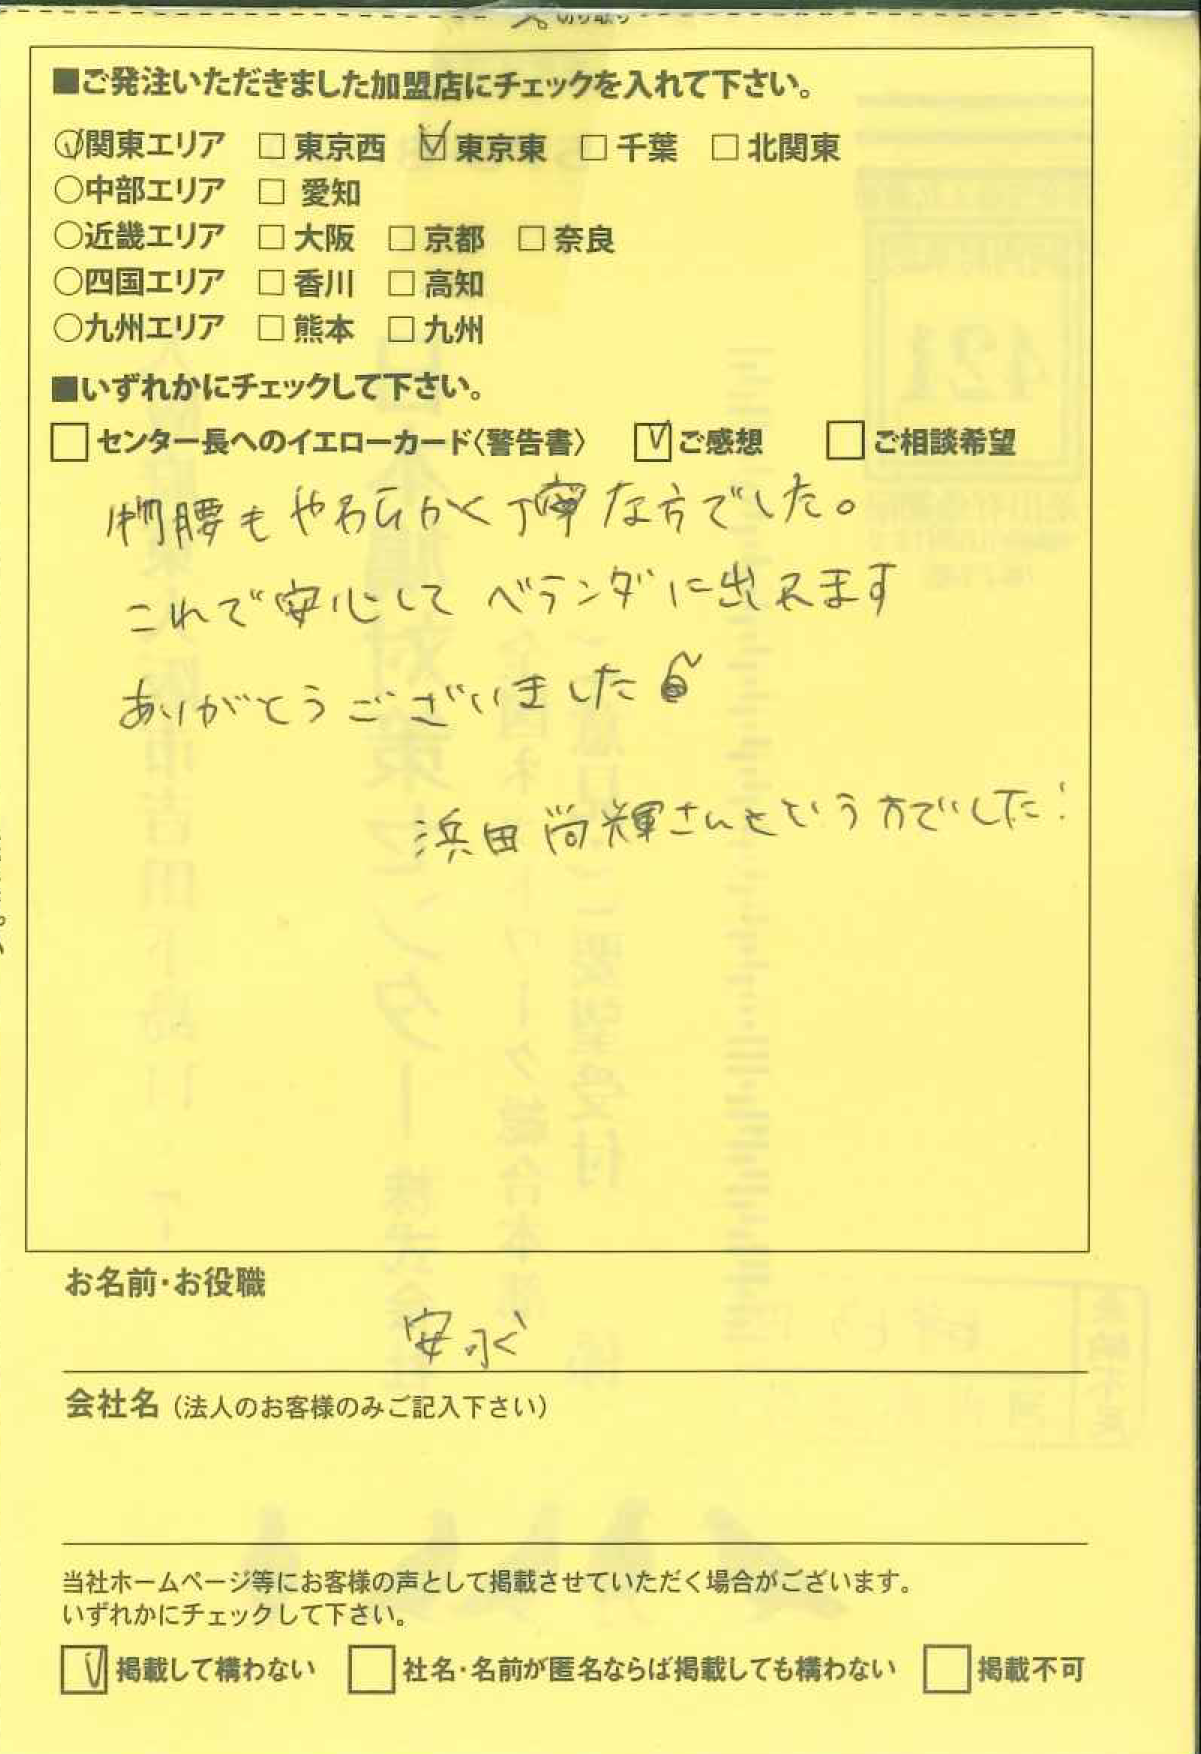 切り取り
■ご発注いただきました加盟店にチェックを入れて下さい。
○関東エリア □ 東京西 ☑ 東京東 □ 千葉 □ 北関東
○中部エリア □ 愛知
○近畿エリア □ 大阪 □ 京都 □ 奈良
○四国エリア □ 香川 □ 高知
○九州エリア □ 熊本 □ 九州
■いずれかにチェックして下さい。
□ センター長へのイエローカード〈警告書〉 ☑ ご感想 □ ご相談希望
物腰もやわらかく丁寧な方でした。
これで安心して ベランダに出れます
ありがとうございました
浜田尚輝さんという方でした!
お名前・お役職
安永
会社名（法人のお客様のみご記入下さい）
当社ホームページ等にお客様の声として掲載させていただく場合がございます。
いずれかにチェックして下さい。
☑ 掲載して構わない □ 社名・名前が匿名ならば掲載しても構わない □ 掲載不可